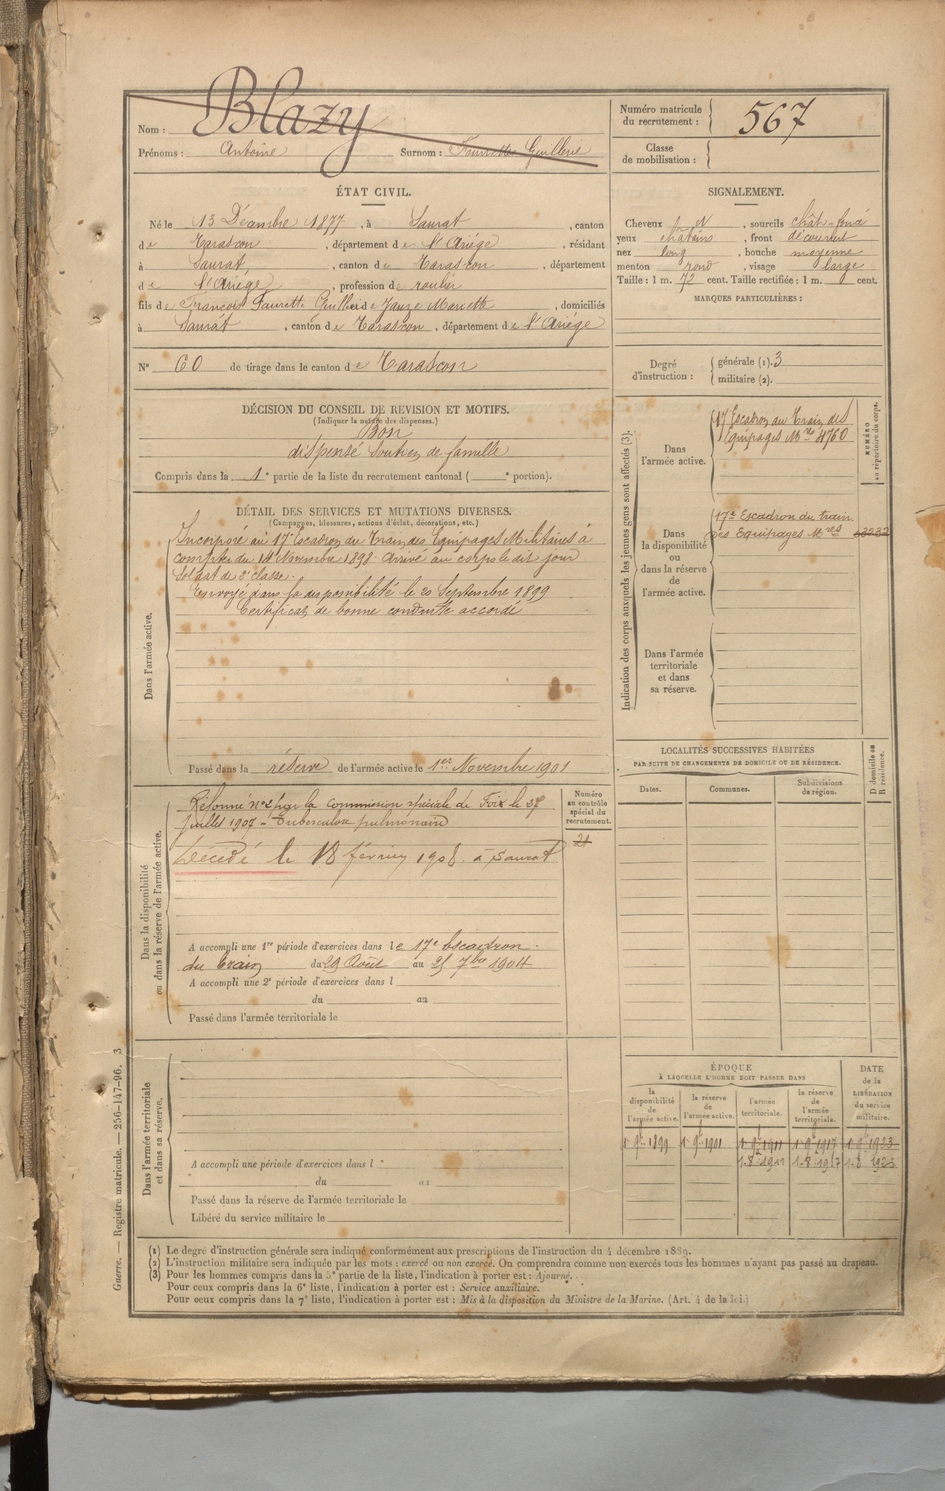 Nom : Blazy
Prénoms : Antoine Surnom :
Numéro matricule du recrutement : 567
Classe de mobilisation :
ÉTAT CIVIL.
Né le 13 Décembre 1877, à Saurat, canton
de Tarascon, département de l'Ariége, résidant
à Saurat, canton de Tarascon, département
de l'Ariége, profession de roulier
fils de François et de
domiciliés
à Saurat, canton de Tarascon, département de l'Ariége
N° 60 de tirage dans le canton de Tarascon
SIGNALEMENT.
Cheveux, sourcils chât-foncé
yeux châtains, front découvert
nez long, bouche moyenne
menton rond, visage large
Taille : 1 m. 72 cent. Taille rectifiée : 1 m. cent.
MARQUES PARTICULIÈRES :
Degré d'instruction :
générale (1). 3
militaire (2).
DÉCISION DU CONSEIL DE REVISION ET MOTIFS.
(Indiquer la nature des dispenses.)
Bon
dispensé Soutien de famille
Compris dans la 1e partie de la liste du recrutement cantonal ( e portion).
DÉTAIL DES SERVICES ET MUTATIONS DIVERSES.
(Campagnes, blessures, actions d'éclat, décorations, etc.)
Dans l'armée active.
Incorporé au 17e Escadron du Train des Equipages Militaires à
compter du 14 Novembre 1898 Arrivé au corps le dit jour
Soldat de 2e classe.
Envoyé dans la disponibilité le 20 Septembre 1899
Certificat de bonne conduite accordé
Passé dans la réserve de l'armée active le 1er Novembre 1901
Indication des corps auxquels les jeunes gens sont affectés (3).
Dans l'armée active.
17 Escadron du Train des
Equipages Mres 4760
NUMÉRO au répertoire du corps.
Dans la disponibilité ou dans la réserve de l'armée active.
17e Escadron du train
des Equipages Mres
Dans l'armée territoriale et dans sa réserve.
LOCALITÉS SUCCESSIVES HABITÉES
PAR SUITE DE CHANGEMENTS DE DOMICILE OU DE RÉSIDENCE.
Dates. Communes. Subdivisions de région. D domicile ou R résidence.
Dans la disponibilité ou dans la réserve de l'armée active.
Réformé n°2 par la Commission spéciale de Foix le 27
Juillet 1907 - Tuberculose pulmonaire
Numéro au contrôle spécial du recrutement.
21
Décédé le 18 février 1908 à Saurat
A accompli une 1re période d'exercices dans le 17e Escadron
du Train du 29 Août au 25 7bre 1904
A accompli une 2e période d'exercices dans l
du au
Passé dans l'armée territoriale le
Dans l'armée territoriale et dans sa réserve.
A accompli une période d'exercices dans l
du au
Passé dans la réserve de l'armée territoriale le
Libéré du service militaire le
ÉPOQUE
À LAQUELLE L'HOMME DOIT PASSER DANS
la disponibilité de l'armée active. la réserve de l'armée active. l'armée territoriale. la réserve de l'armée territoriale. DATE de la LIBÉRATION du service militaire.
1 9bre 1899 1 9bre 1901 1 9bre 1911 1 9bre 1917 1 9bre 1923
1-8-1911 1-8-1917 1-8-1923
(1) Le degré d'instruction générale sera indiqué conformément aux prescriptions de l'instruction du 4 décembre 1889.
(2) L'instruction militaire sera indiquée par les mots : exercé ou non exercé. On comprendra comme non exercés tous les hommes n'ayant pas passé au drapeau.
(3) Pour les hommes compris dans la 5e partie de la liste, l'indication à porter est : Ajourné.
Pour ceux compris dans la 6e liste, l'indication à porter est : Service auxiliaire.
Pour ceux compris dans la 7e liste, l'indication à porter est : Mis à la disposition du Ministre de la Marine. (Art. 4 de la loi.)
Guerre. — Registre matricule. — 256-147-96. 3